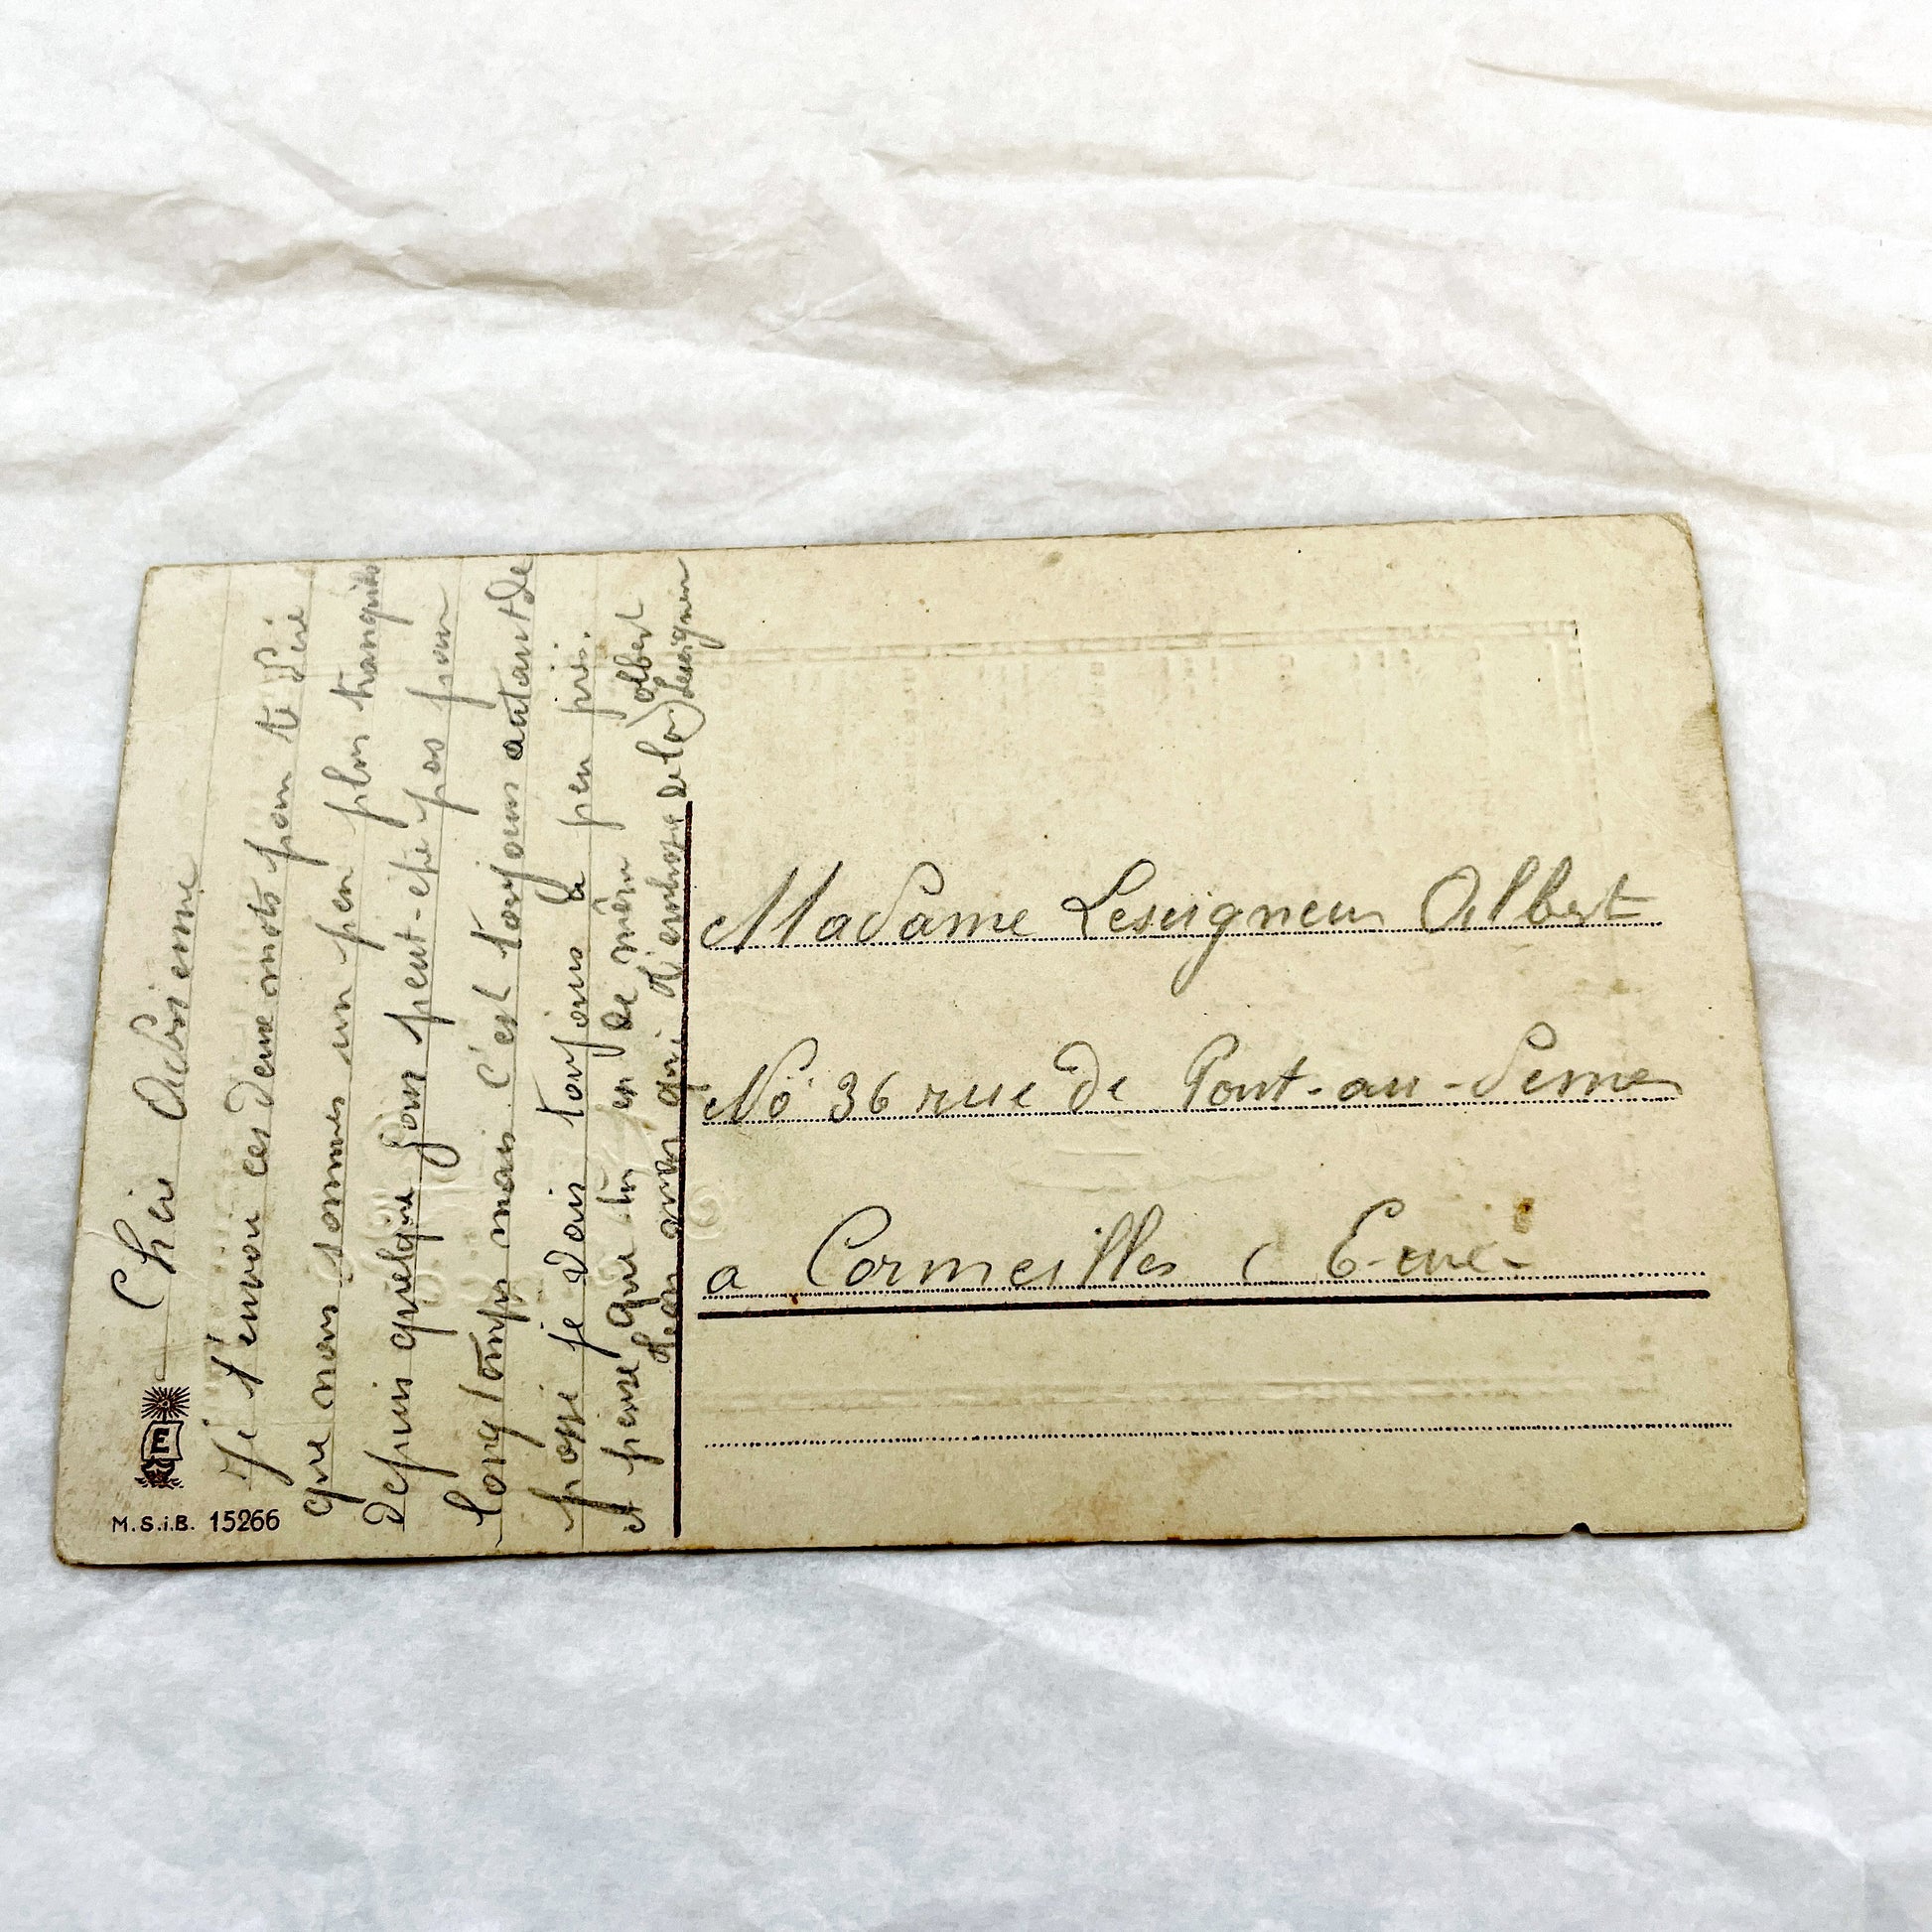 Chère Adrienne
Je t'envoie ces deux mots pour te dire
que nous sommes un peu plus tranquile
depuis quelque jour peut-etre pas pour
longtemps mais c'est toujours autant de
passé je vais toujours a peu près.
et pense que tu es de même Albert
Leseigneur
qui t'embrasse de loin
Madame Leseigneur Albert
No 36 rue de Pont-au-Deme
a Cormeilles ( Eure
M.S.i.B. 15266
E